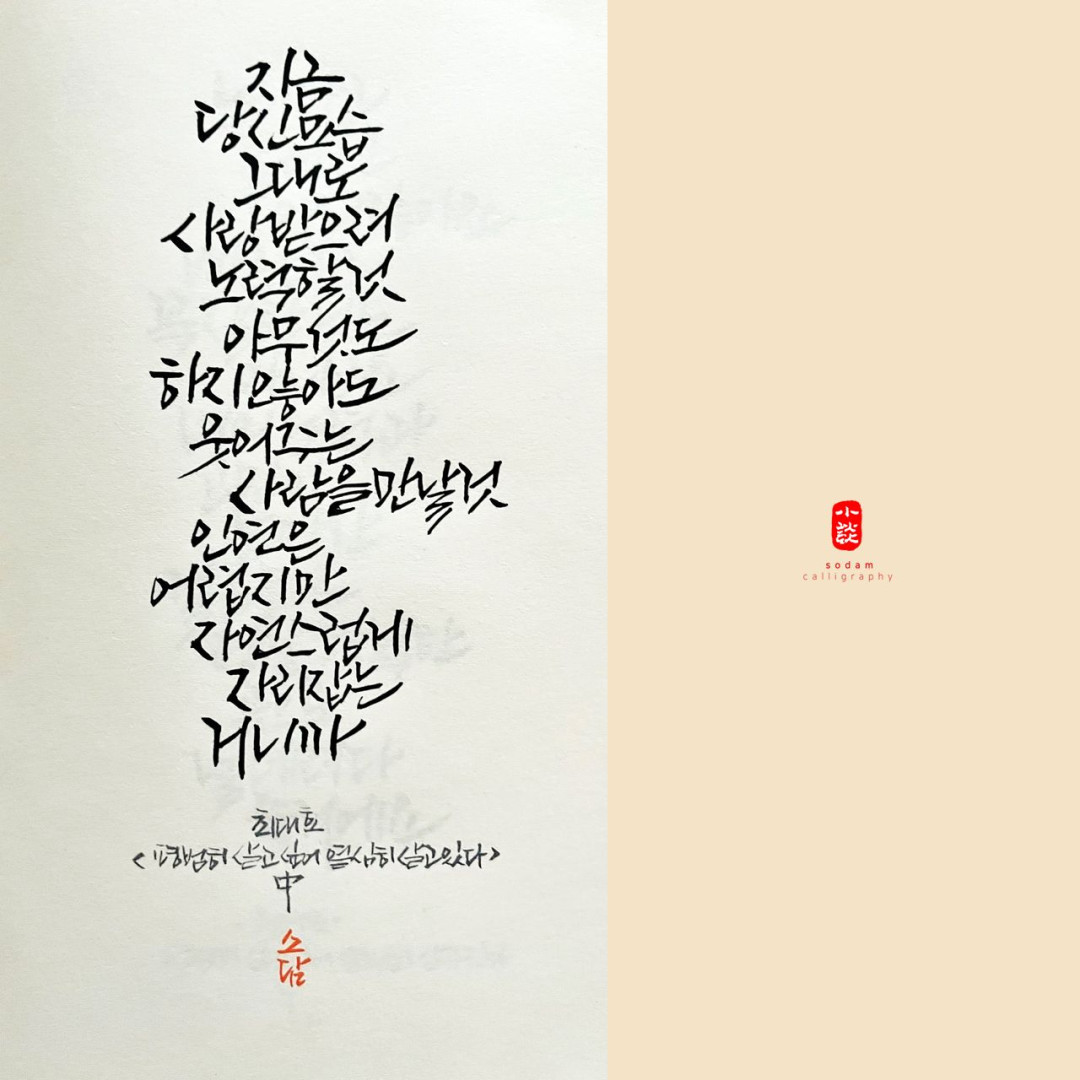 지금
당신모습
그대로
사랑받으려
노력할것
아무것도
하지않아도
웃어주는
사람을만날것
인연은
어렵지만
자연스럽게
자리잡는
거니까
최대호
<평범히 살고 싶어 열심히 살고있다>
中
소
담
小
談
sodam
calligraphy